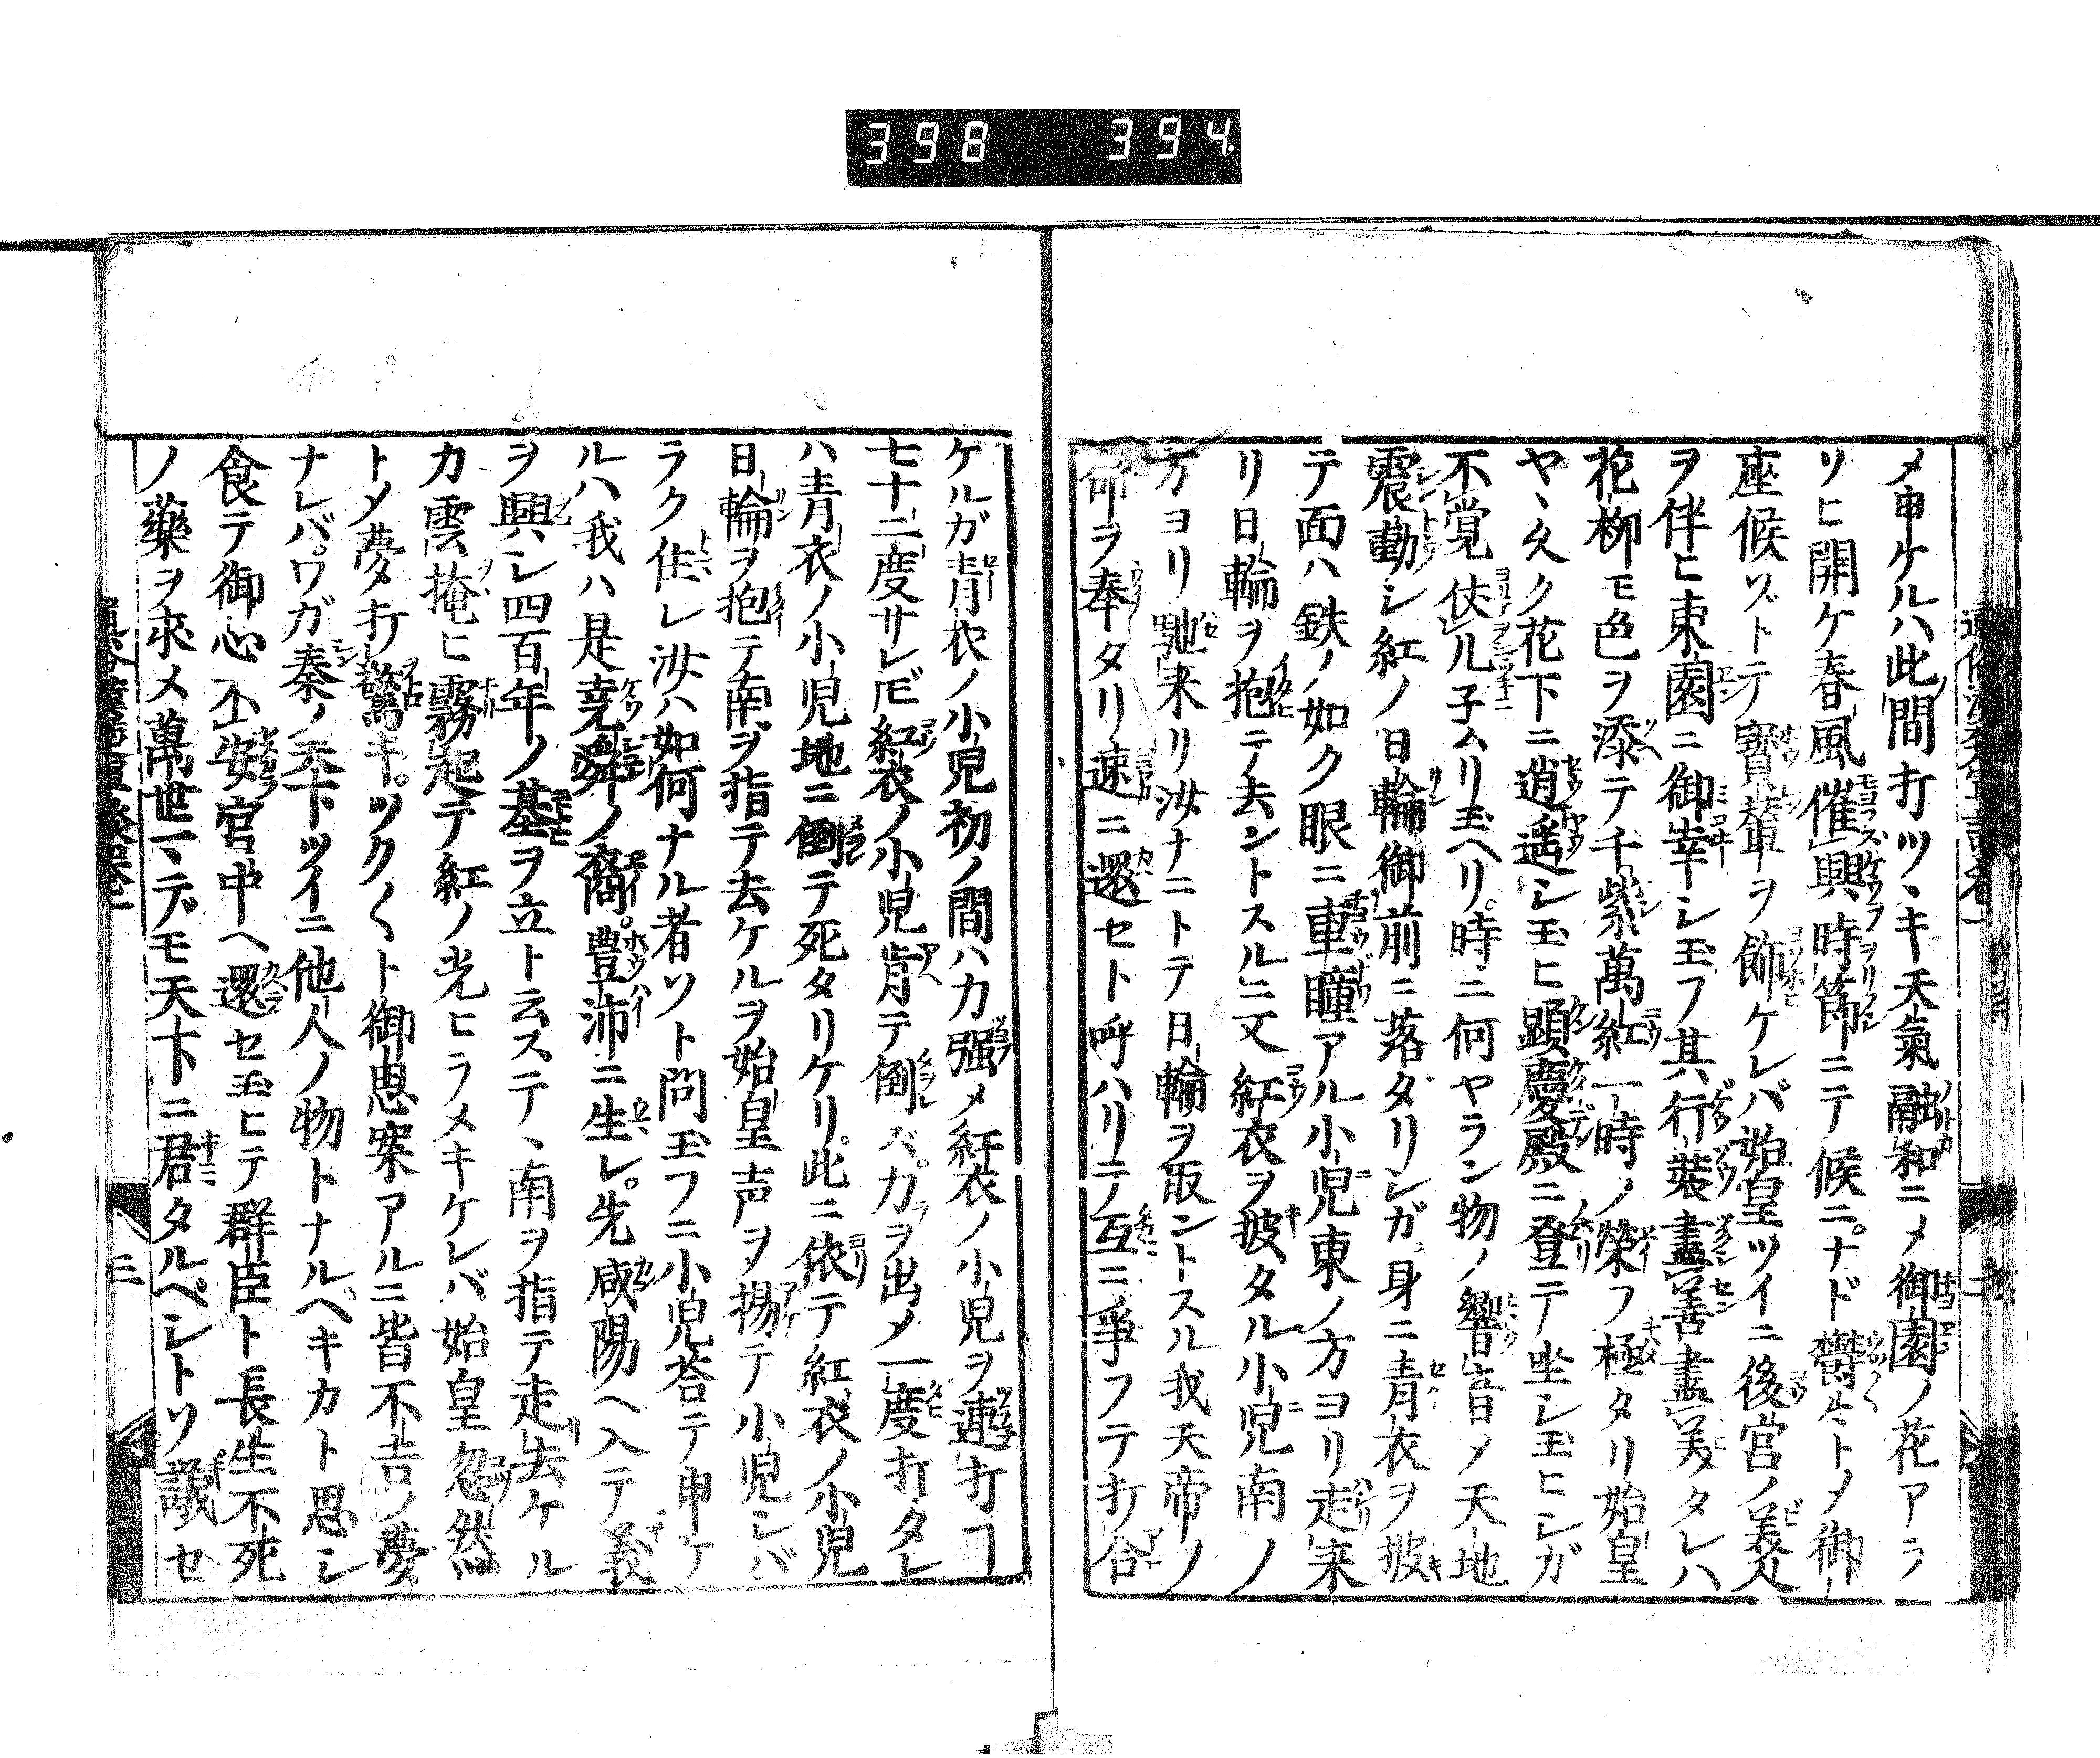 398 394
メ申ケルハ此間打ツヽキ天氣融和ニメ御園ノ花アラ
ソヒ開ケ春風催興時節ニテ候ニナド鬱々トメ御
座候ゾトテ寳輦ヲ飾ケレバ始皇ツイニ後宮ノ美人
ヲ伴ヒ東園ニ御幸シ玉フ其行裝盡善盡美タレハ
花柳モ色ヲ添テ千紫萬紅一時ノ榮フ極タリ始皇
ヤヽ久ク花下ニ逍遥シ玉ヒ顕慶殿ニ登テ坐シ玉ヒシガ
不覚伏几子ムリ玉ヘリ時ニ何ヤラン物ノ響音ノ天地
震動シ紅ノ日輪御前ニ落タリシガ身ニ青衣ヲ披
テ面ハ鉄ノ如ク眼ニ重瞳アル小児東ノ方ヨリ走来
リ日輪ヲ抱テ去ントスルニ又紅衣ヲ披タル小児南ノ
方ヨリ馳来リ汝ナニトテ日輪ヲ取ントスル我天帝ノ
命ヲ奉タリ速ニ還セト呼ハリテ互ニ爭フテ打合
ケルガ青衣ノ小児初ノ間ハカ强メ紅衣ノ小児ヲ連打ヿ
七十二度サレ𪜈紅衣ノ小児肯テ倒ズカヲ出メ一度打タレ
ハ青衣ノ小児地ニ倒テ死タリケリ此ニ依テ紅衣ノ小児
日輪ヲ抱テ南ヲ指テ去ケルヲ始皇声ヲ揚テ小児シバ
ラク住レ汝ハ如何ナル者ソト問玉フニ小児荅テ申ケ
ルハ我ハ是堯舜ノ裔豊沛ニ生レ先咸陽ヘ入テ義
ヲ興シ四百年ノ基ヲ立ト云ステヽ南ヲ指テ走去ケル
カ雲掩ヒ霧起テ紅ノ光ヒラメキケレバ始皇忽然
トメ夢タ打驚キツクくト御思案アルニ皆不吉ノ夢
ナレバワガ秦ノ天下ツイニ他人ノ物トナルヘキカト思シ
食テ御心不安官中ヘ還セ玉ヒテ群臣ト長生不死
ノ藥ヲ求メ萬世マデモ天下ニ君タルベシトソ議セ
三